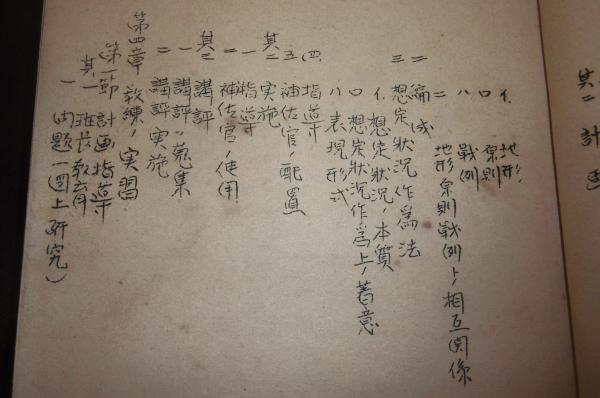 イ、地形、
ロ　原則
ハ　戦例
ニ　地形、原則戦例ト、相互関係
二　編成
三　想定状況作為法
イ、想定状況ノ本質
ロ　想定状況作為上ノ着意
ハ　表現形式
四、指導
五　補佐官ノ配置
其二　実施
一　指導
二　補佐官ノ使用
其三　講評
一　講評ノ蒐集
二　講評実施
第四章　教練ノ実習
第一節　計画指導
其一　班長教育
一　問題一（図上研究）
其二　計画